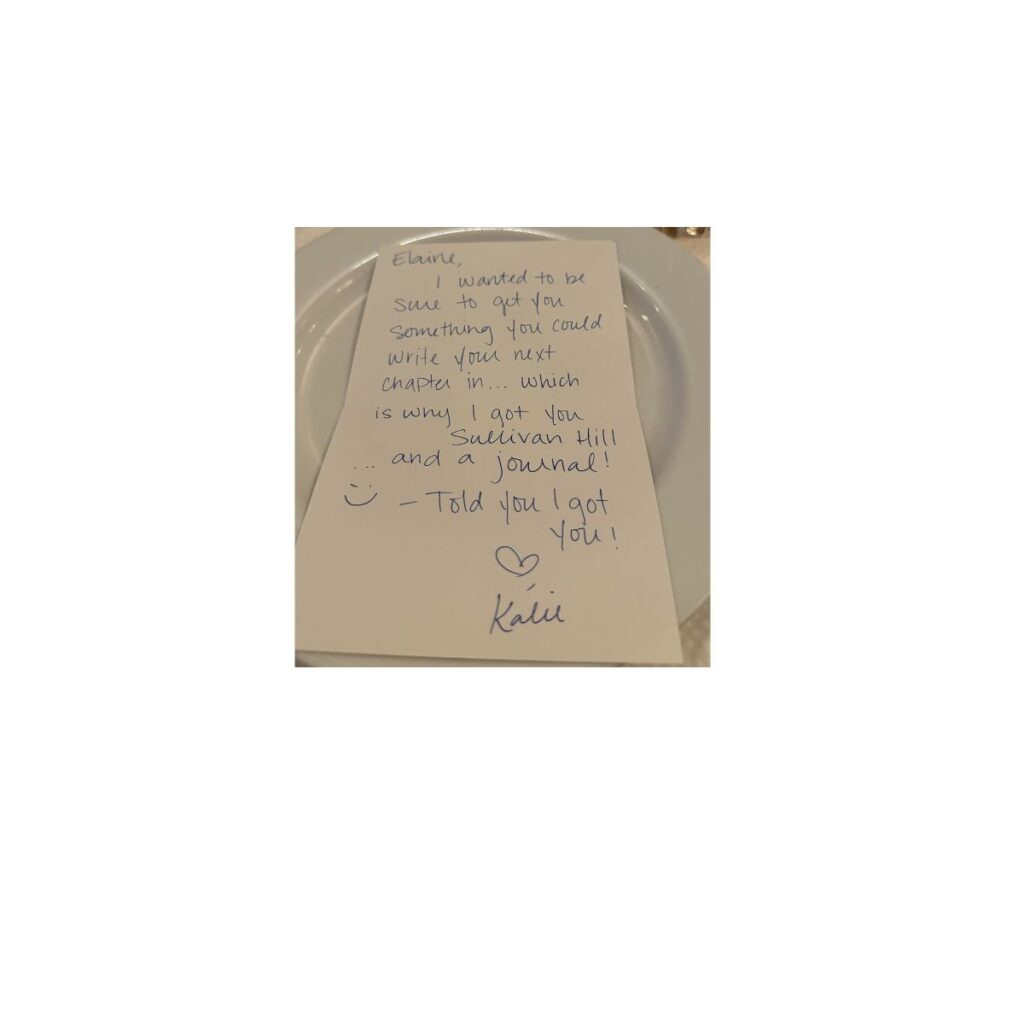 Elaine,
I wanted to be
sure to get you
something you could
write your next
chapter in... which
is why I got you
Sullivan Hill
... and a journal!
- Told you I got
you!
Kalie